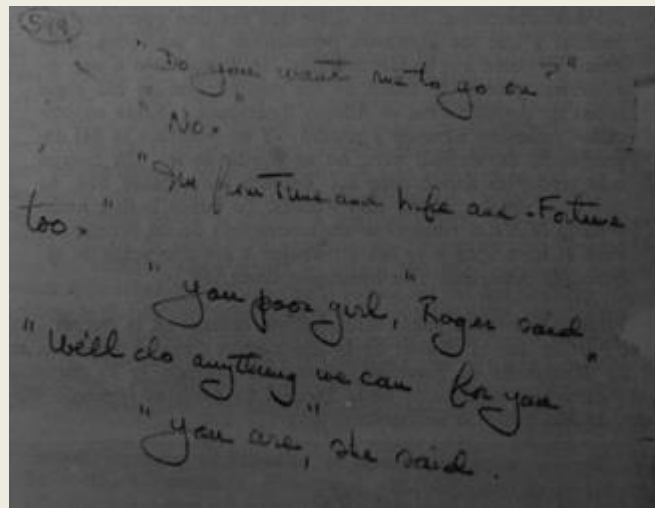 519
"Do you want me to go on?"
"No."
"I've from Time and Life and Fortune
too."
"you poor girl," Roger said
"We'll do anything we can for you"
"you are," she said.